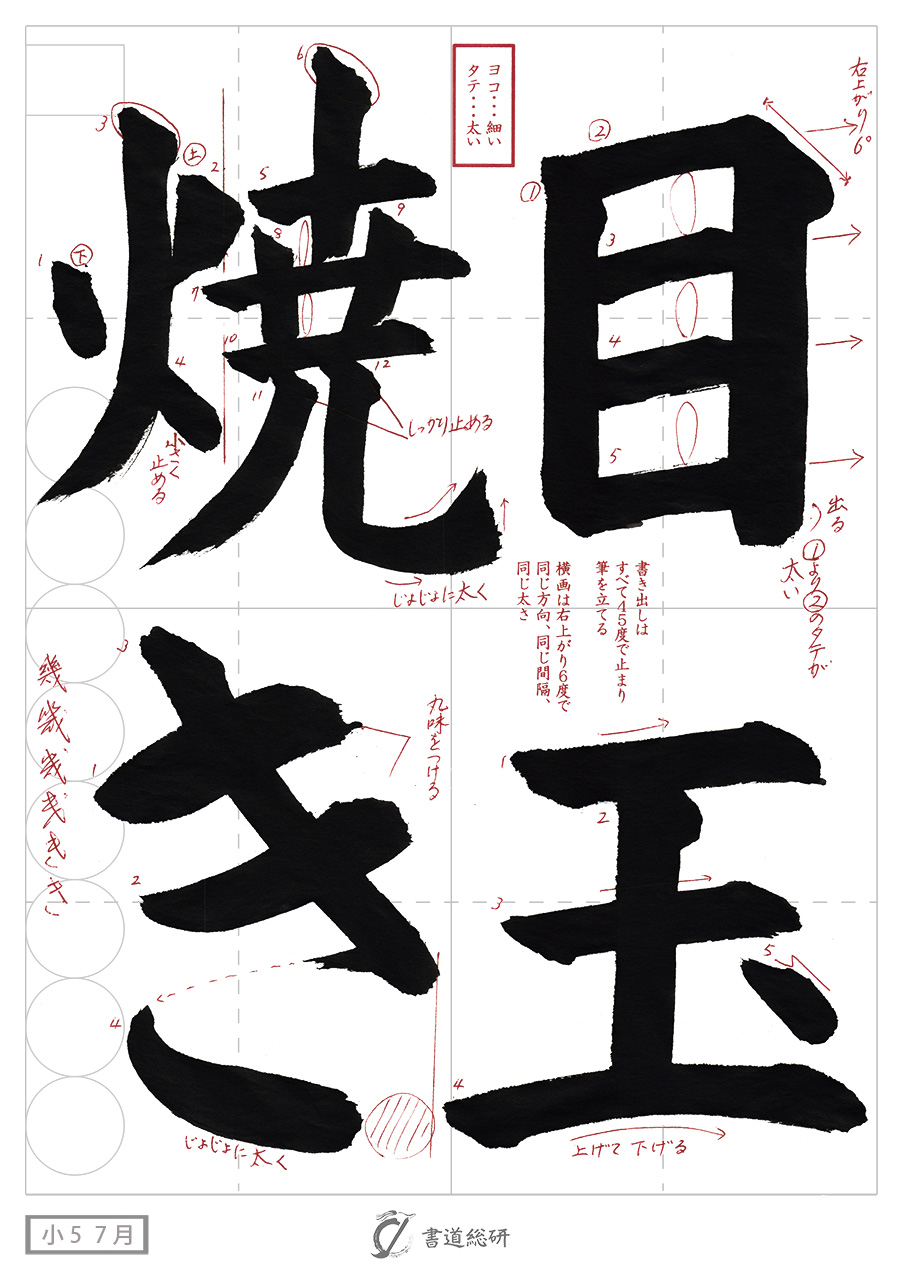 目玉
焼き
ヨコ・・・細い
タテ・・・太い
右上がり6°
①
②
3
4
5
出る
①より②のタテが
太い
書き出しは
すべて45度で止まり
筆を立てる
横画は右上がり6度で
同じ方向、同じ間隔、
同じ太さ
1
2
3
4
5
上げて下げる
1
下
上
2
3
4
小さく
止める
5
6
7
8
9
10
11
12
しっかり止める
じょじょに太く
1
2
3
4
丸味をつける
じょじょに太く
幾
き
小5 7月
書道総研